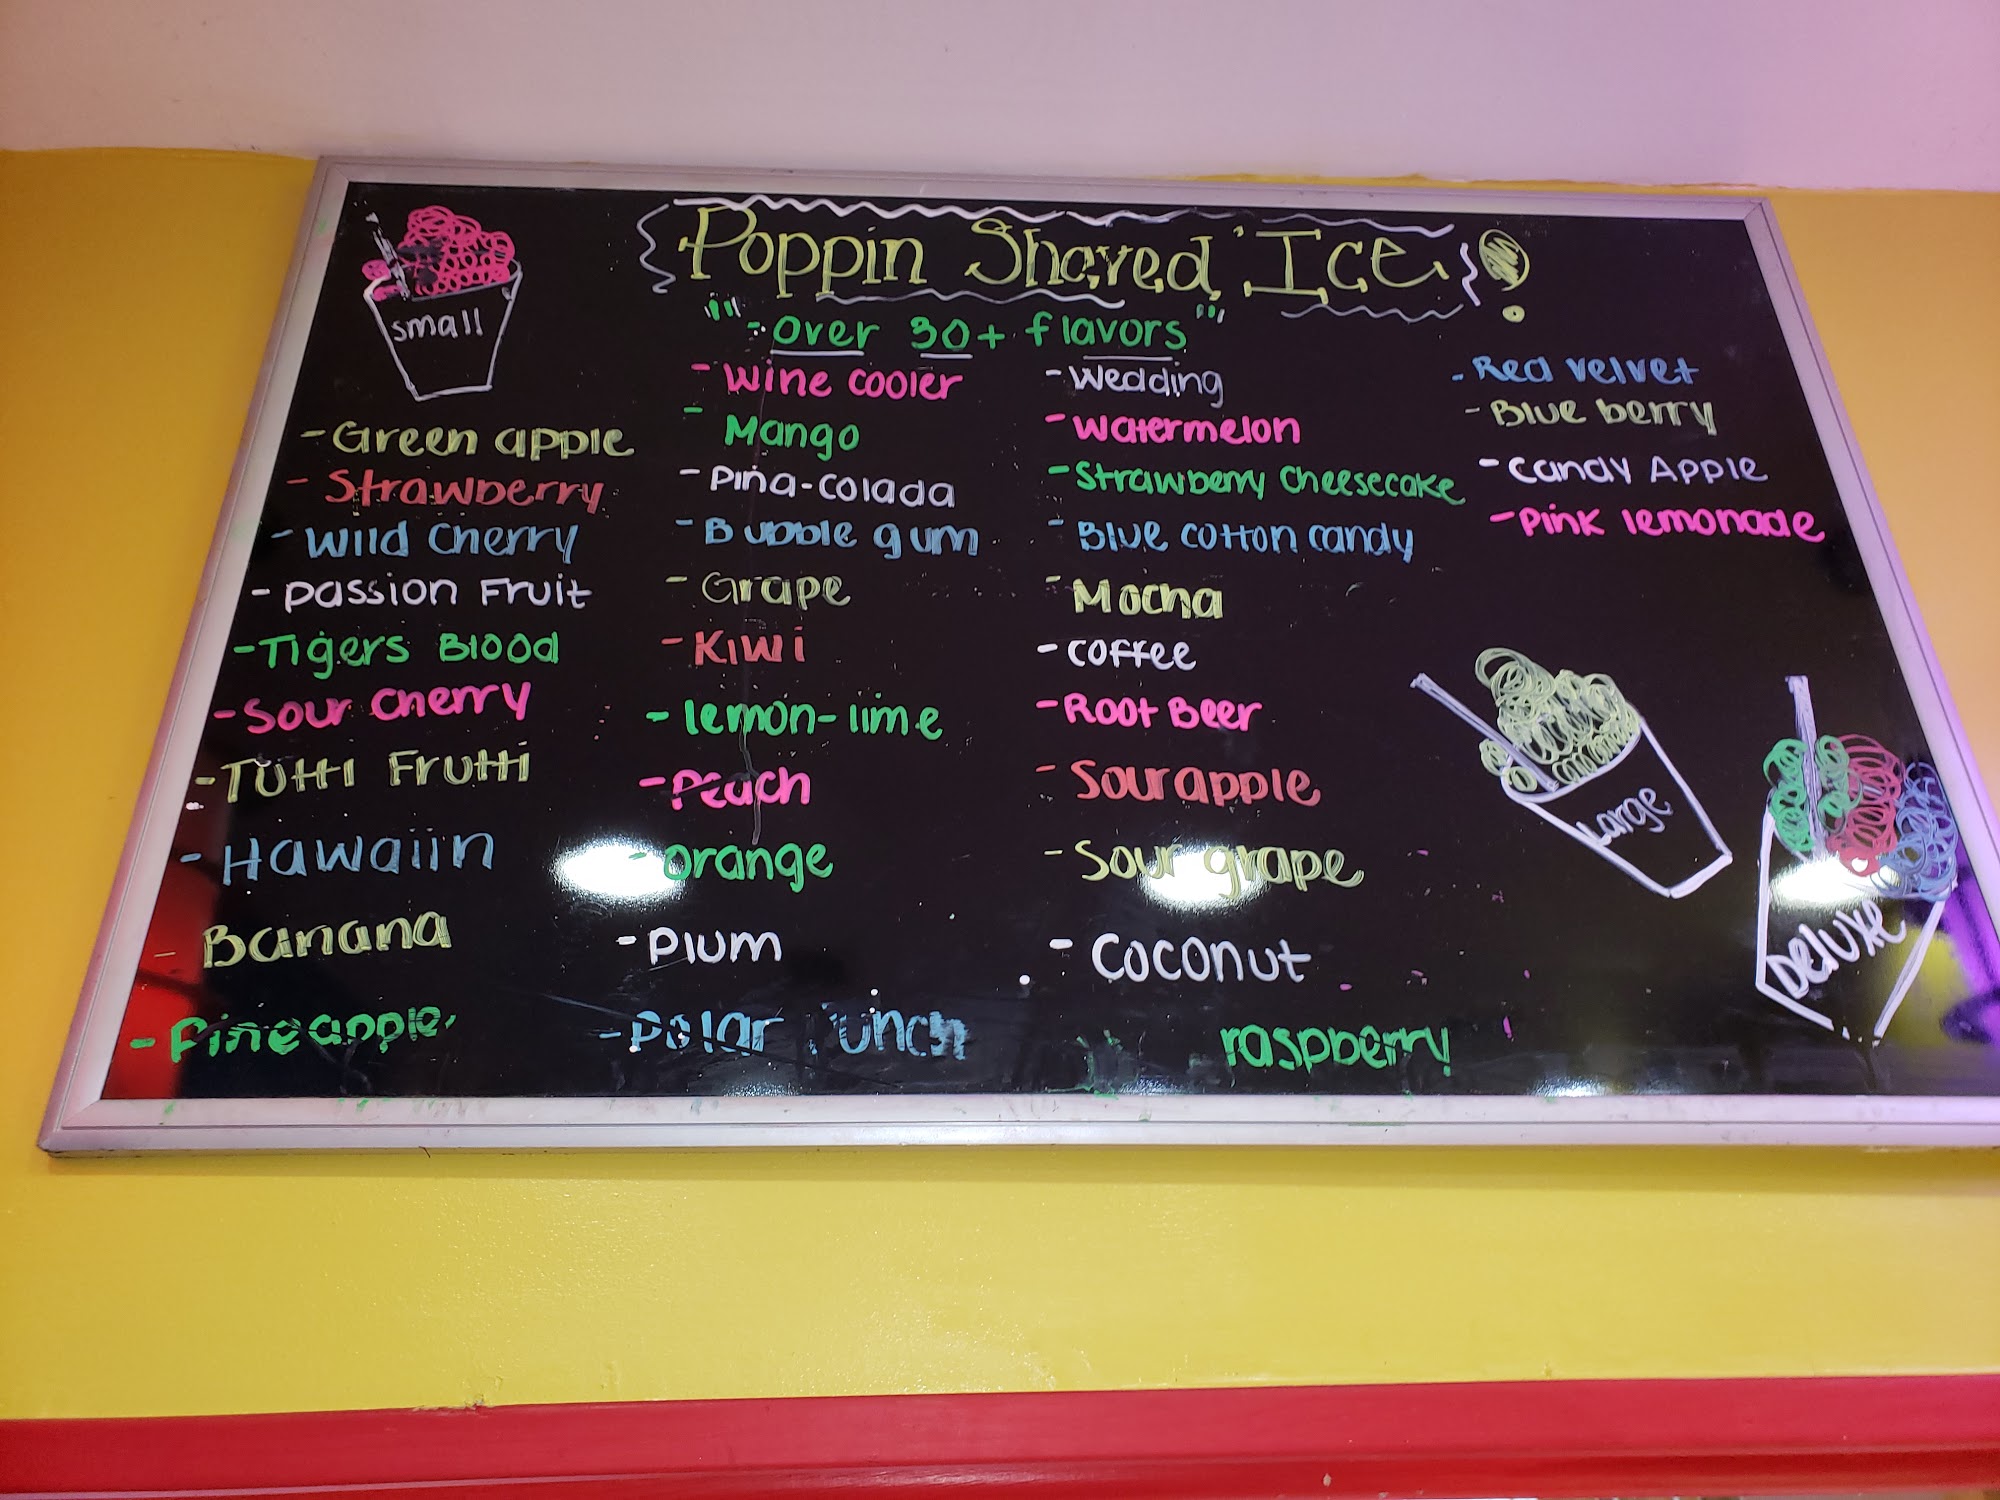 Poppin Shaved Ice!
"- over 30+ flavors"
small
- Green apple
- Strawberry
- Wild Cherry
- Passion Fruit
- Tigers Blood
- Sour Cherry
- Tutti Frutti
- Hawaiin
- Banana
- Pineapple
- Wine cooler
- Mango
- Piña-colada
- Bubble gum
- Grape
- Kiwi
- lemon-lime
- Peach
- orange
- Plum
- Polar Punch
- Wedding
- Watermelon
- Strawberry Cheesecake
- Blue cotton candy
- Mocha
- Coffee
- Root Beer
- Sour apple
- Sour grape
- Coconut
raspberry
- Red velvet
- Blue berry
- Candy Apple
- Pink lemonade
Large
Deluxe